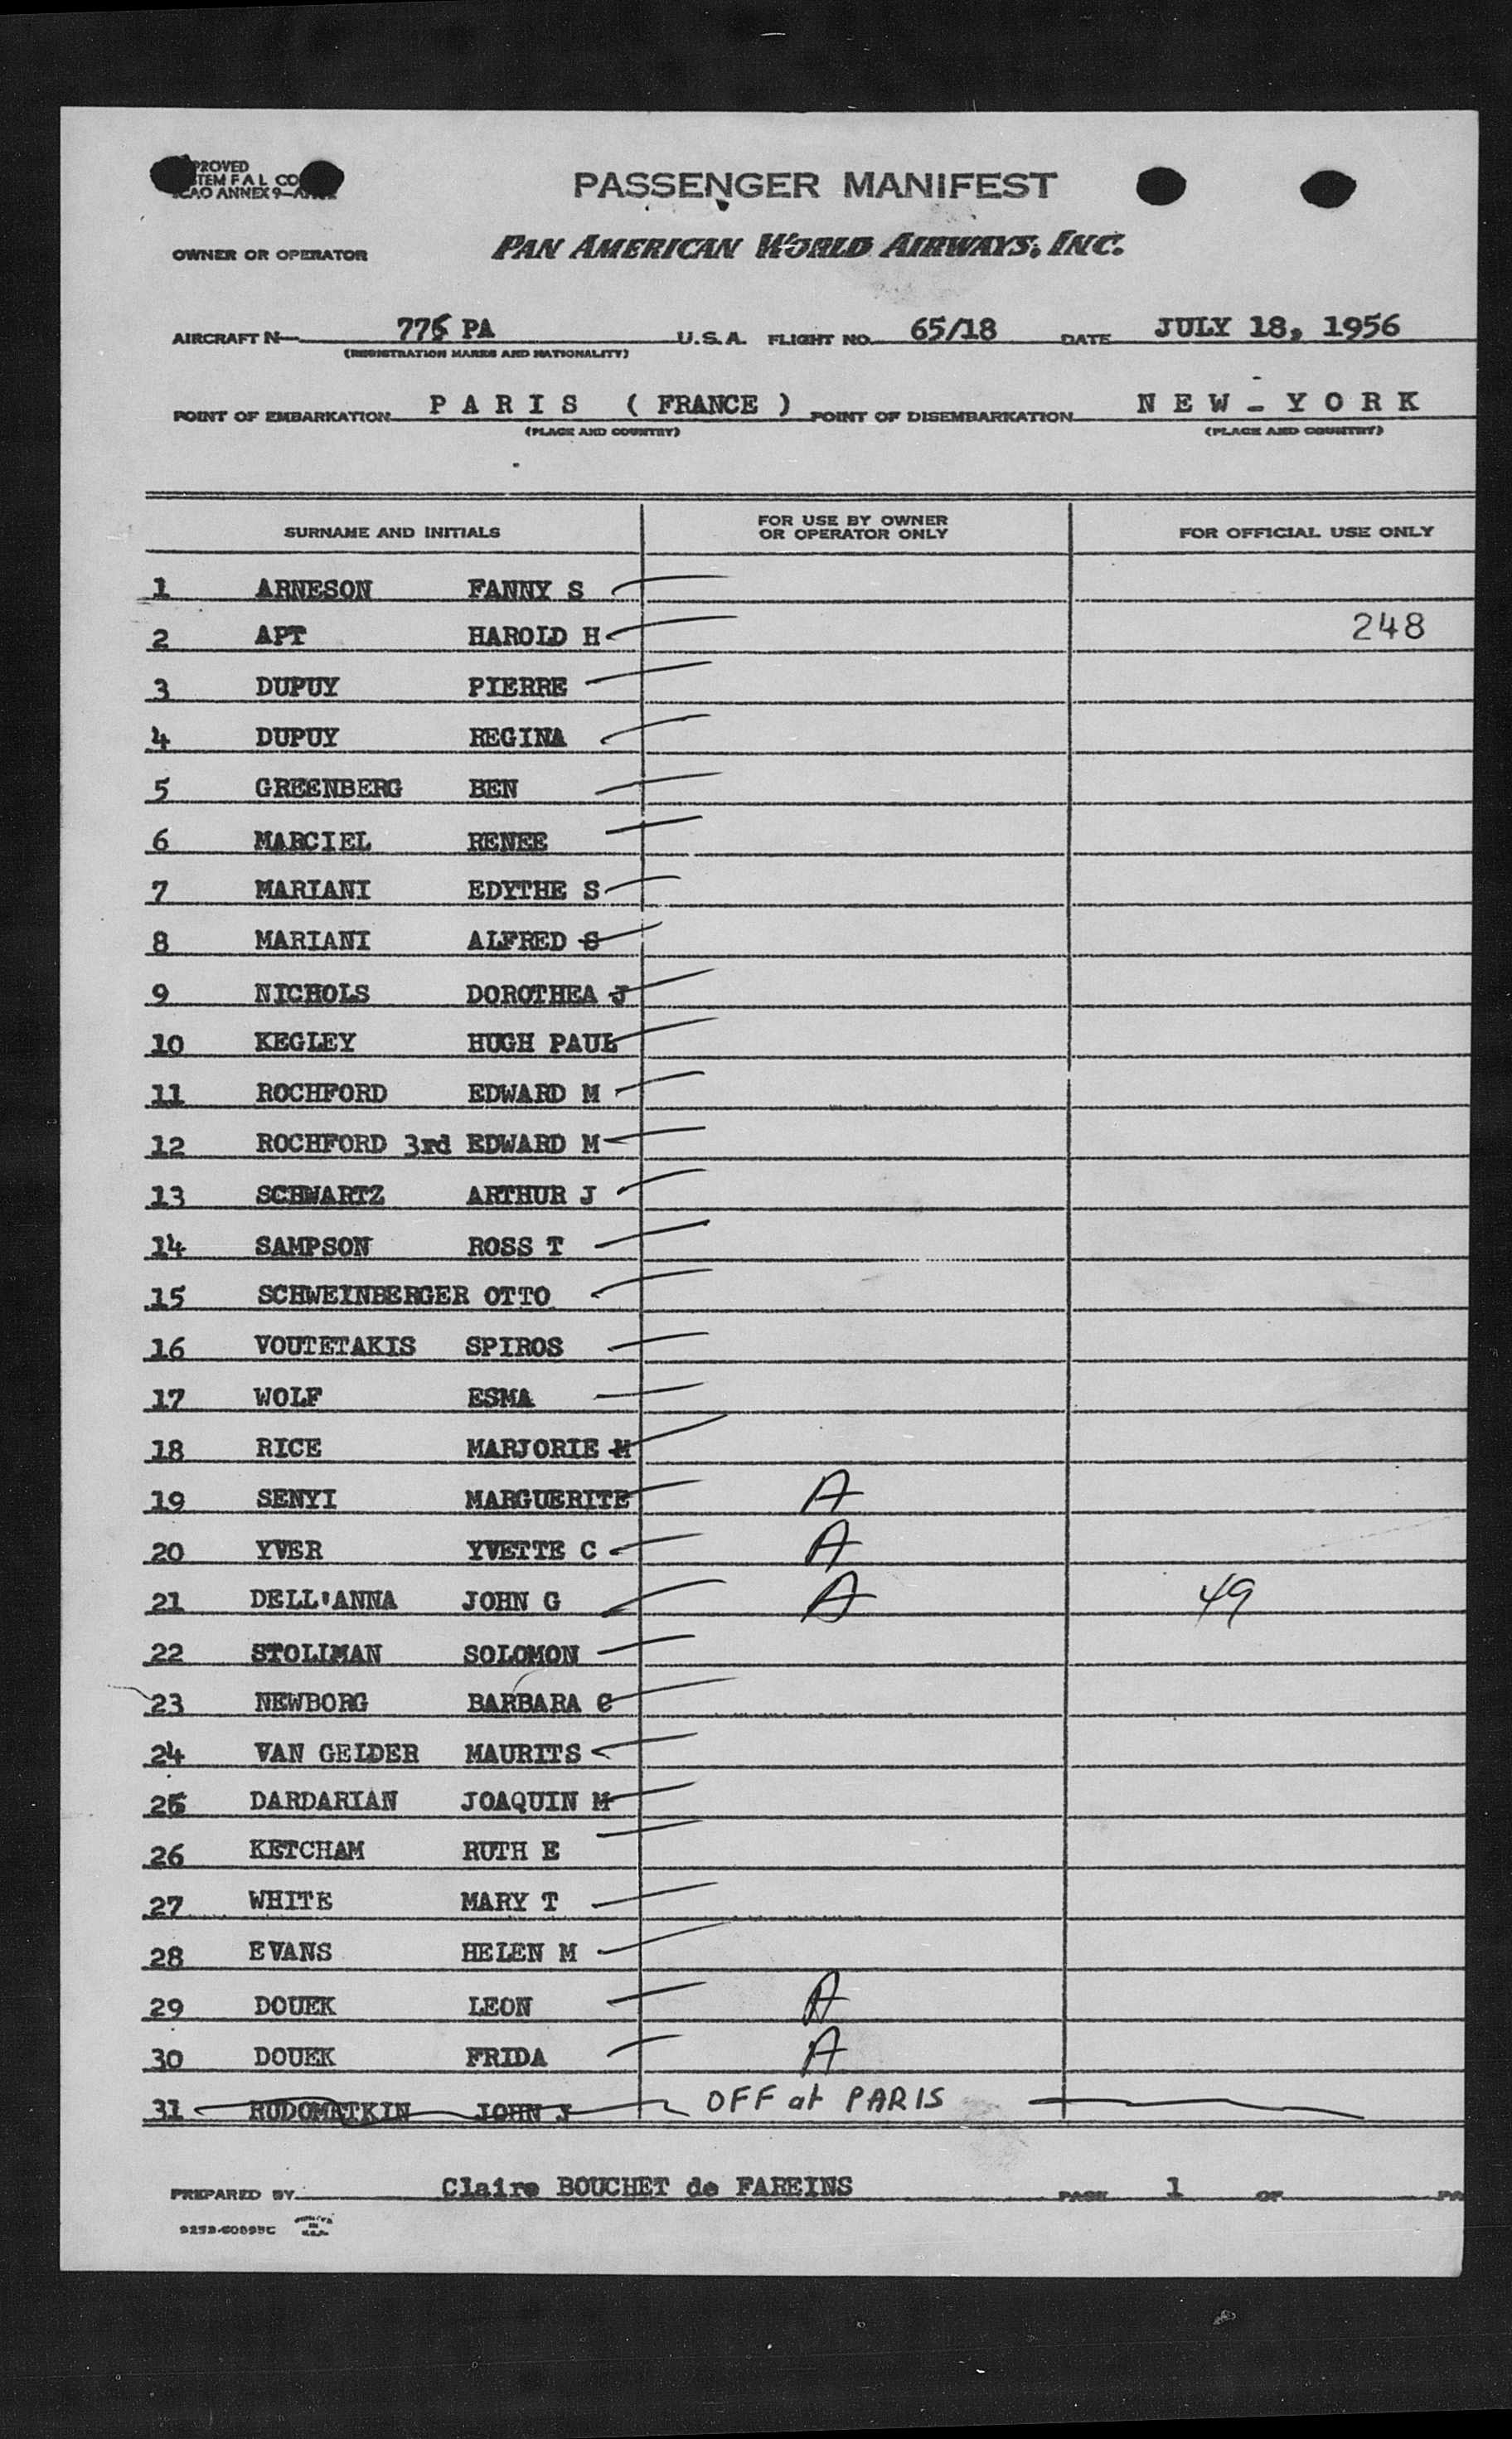 PROVED
TEM F A L CO
CAO ANNEX 9-A
PASSENGER MANIFEST
OWNER OR OPERATOR PAN AMERICAN WORLD AIRWAYS, INC.
AIRCRAFT N 775 PA U.S.A. FLIGHT NO. 65/18 DATE JULY 18, 1956
(REGISTRATION MARKS AND NATIONALITY)
POINT OF EMBARKATION P A R I S ( FRANCE ) POINT OF DISEMBARKATION N E W - Y O R K
(PLACE AND COUNTRY) (PLACE AND COUNTRY)
SURNAME AND INITIALS FOR USE BY OWNER OR OPERATOR ONLY FOR OFFICIAL USE ONLY
1 ARNESON FANNY S
2 APT HAROLD H 248
3 DUPUY PIERRE
4 DUPUY REGINA
5 GREENBERG BEN
6 MARCIEL RENEE
7 MARIANI EDYTHE S
8 MARIANI ALFRED S
9 NICHOLS DOROTHEA J
10 KEGLEY HUGH PAUL
11 ROCHFORD EDWARD M
12 ROCHFORD 3rd EDWARD M
13 SCHWARTZ ARTHUR J
14 SAMPSON ROSS T
15 SCHWEINBERGER OTTO
16 VOUTETAKIS SPIROS
17 WOLF ESMA
18 RICE MARJORIE M
19 SENYI MARGUERITE A
20 YVER YVETTE C A
21 DELL'ANNA JOHN G A 49
22 STOLLMAN SOLOMON
23 NEWBORG BARBARA C
24 VAN GELDER MAURITS
25 DARDARIAN JOAQUIN M
26 KETCHAM RUTH E
27 WHITE MARY T
28 EVANS HELEN M
29 DOUEK LEON A
30 DOUEK FRIDA A
31 RUDOMATKIN JOHN J OFF at PARIS
PREPARED BY Claire BOUCHET de FAREINS PAGE 1 OF PA